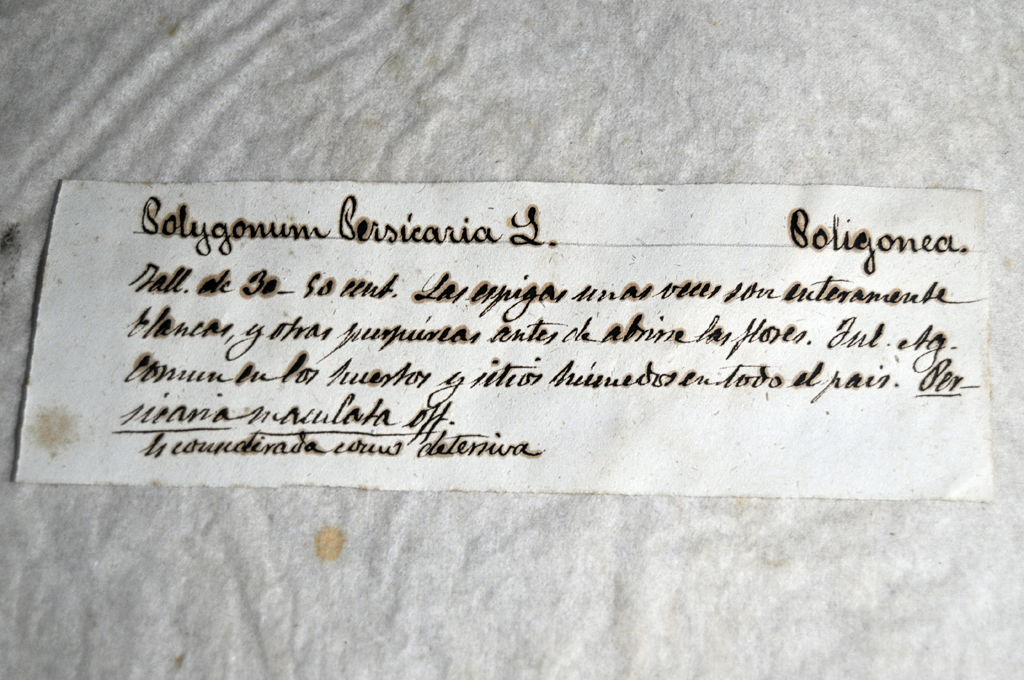 Polygonum Persicaria L. Poligonea.
Tall. de 30-50 cent. Las espigas unas veces son enteramente
blancas, y otras purpúreas antes de abrirse las flores. Jul. Ag.
Comun en los huertos y sitios húmedos en todo el pais. Per-
sicaria maculata off.
Es considerada como detersiva